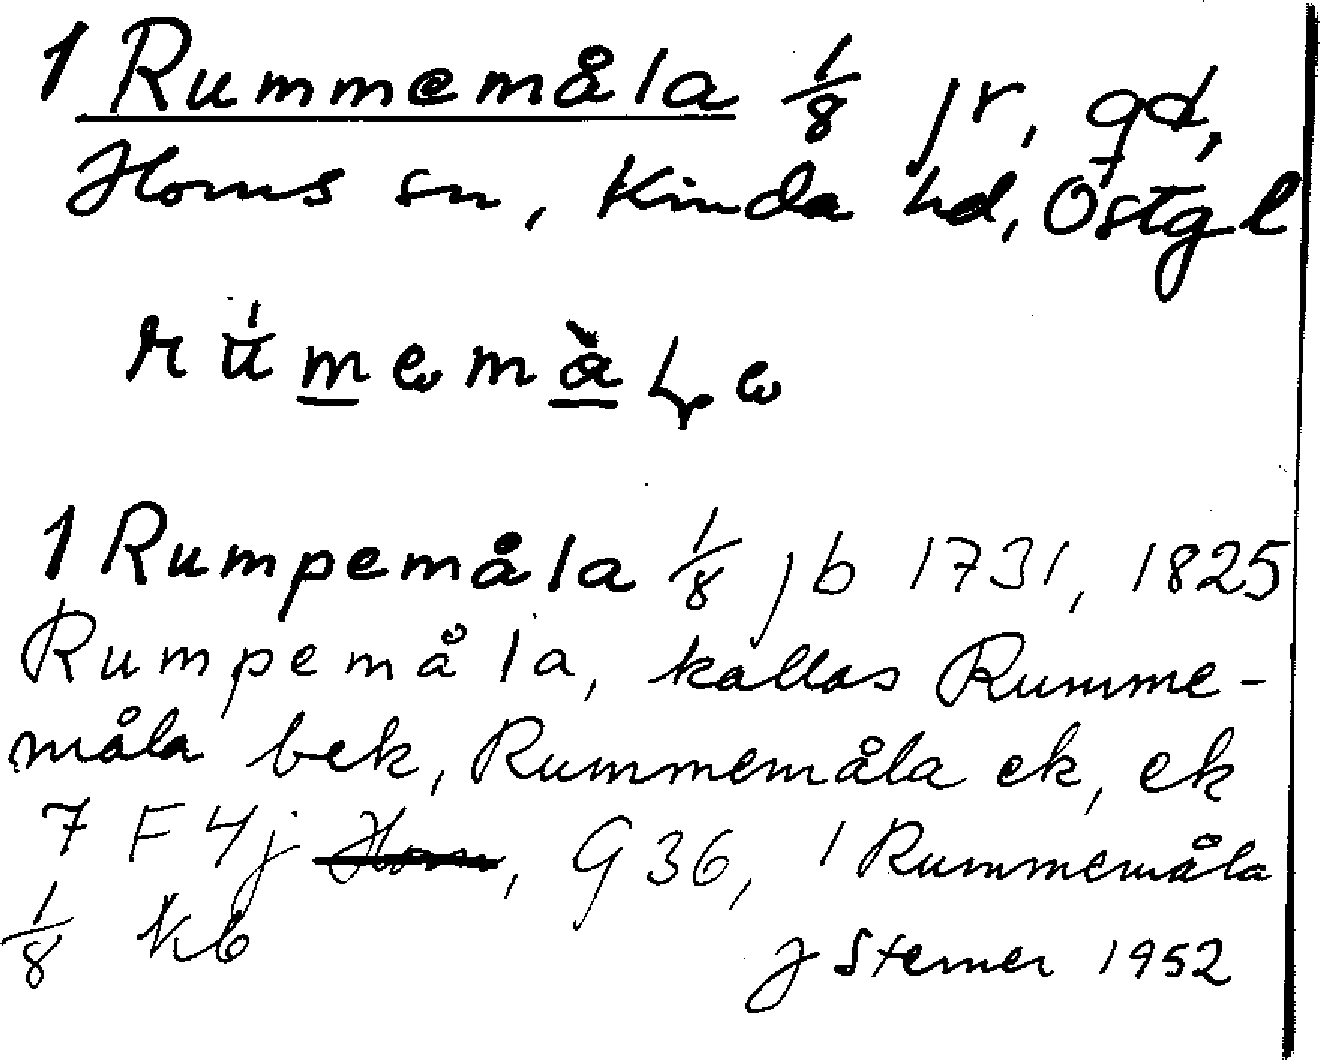 1 Rummemåla 1/8 jr, gd,
Horns sn, Kinda hd, Östgl
1 Rumpemåla 1/8 jb 1731, 1825
Rumpemåla, kallas Rumme-
måla bek, Rummemåla ek, ek
7 F 4j Horn, G 36, 1 Rummemåla
1/8 kb
J Sterner 1952